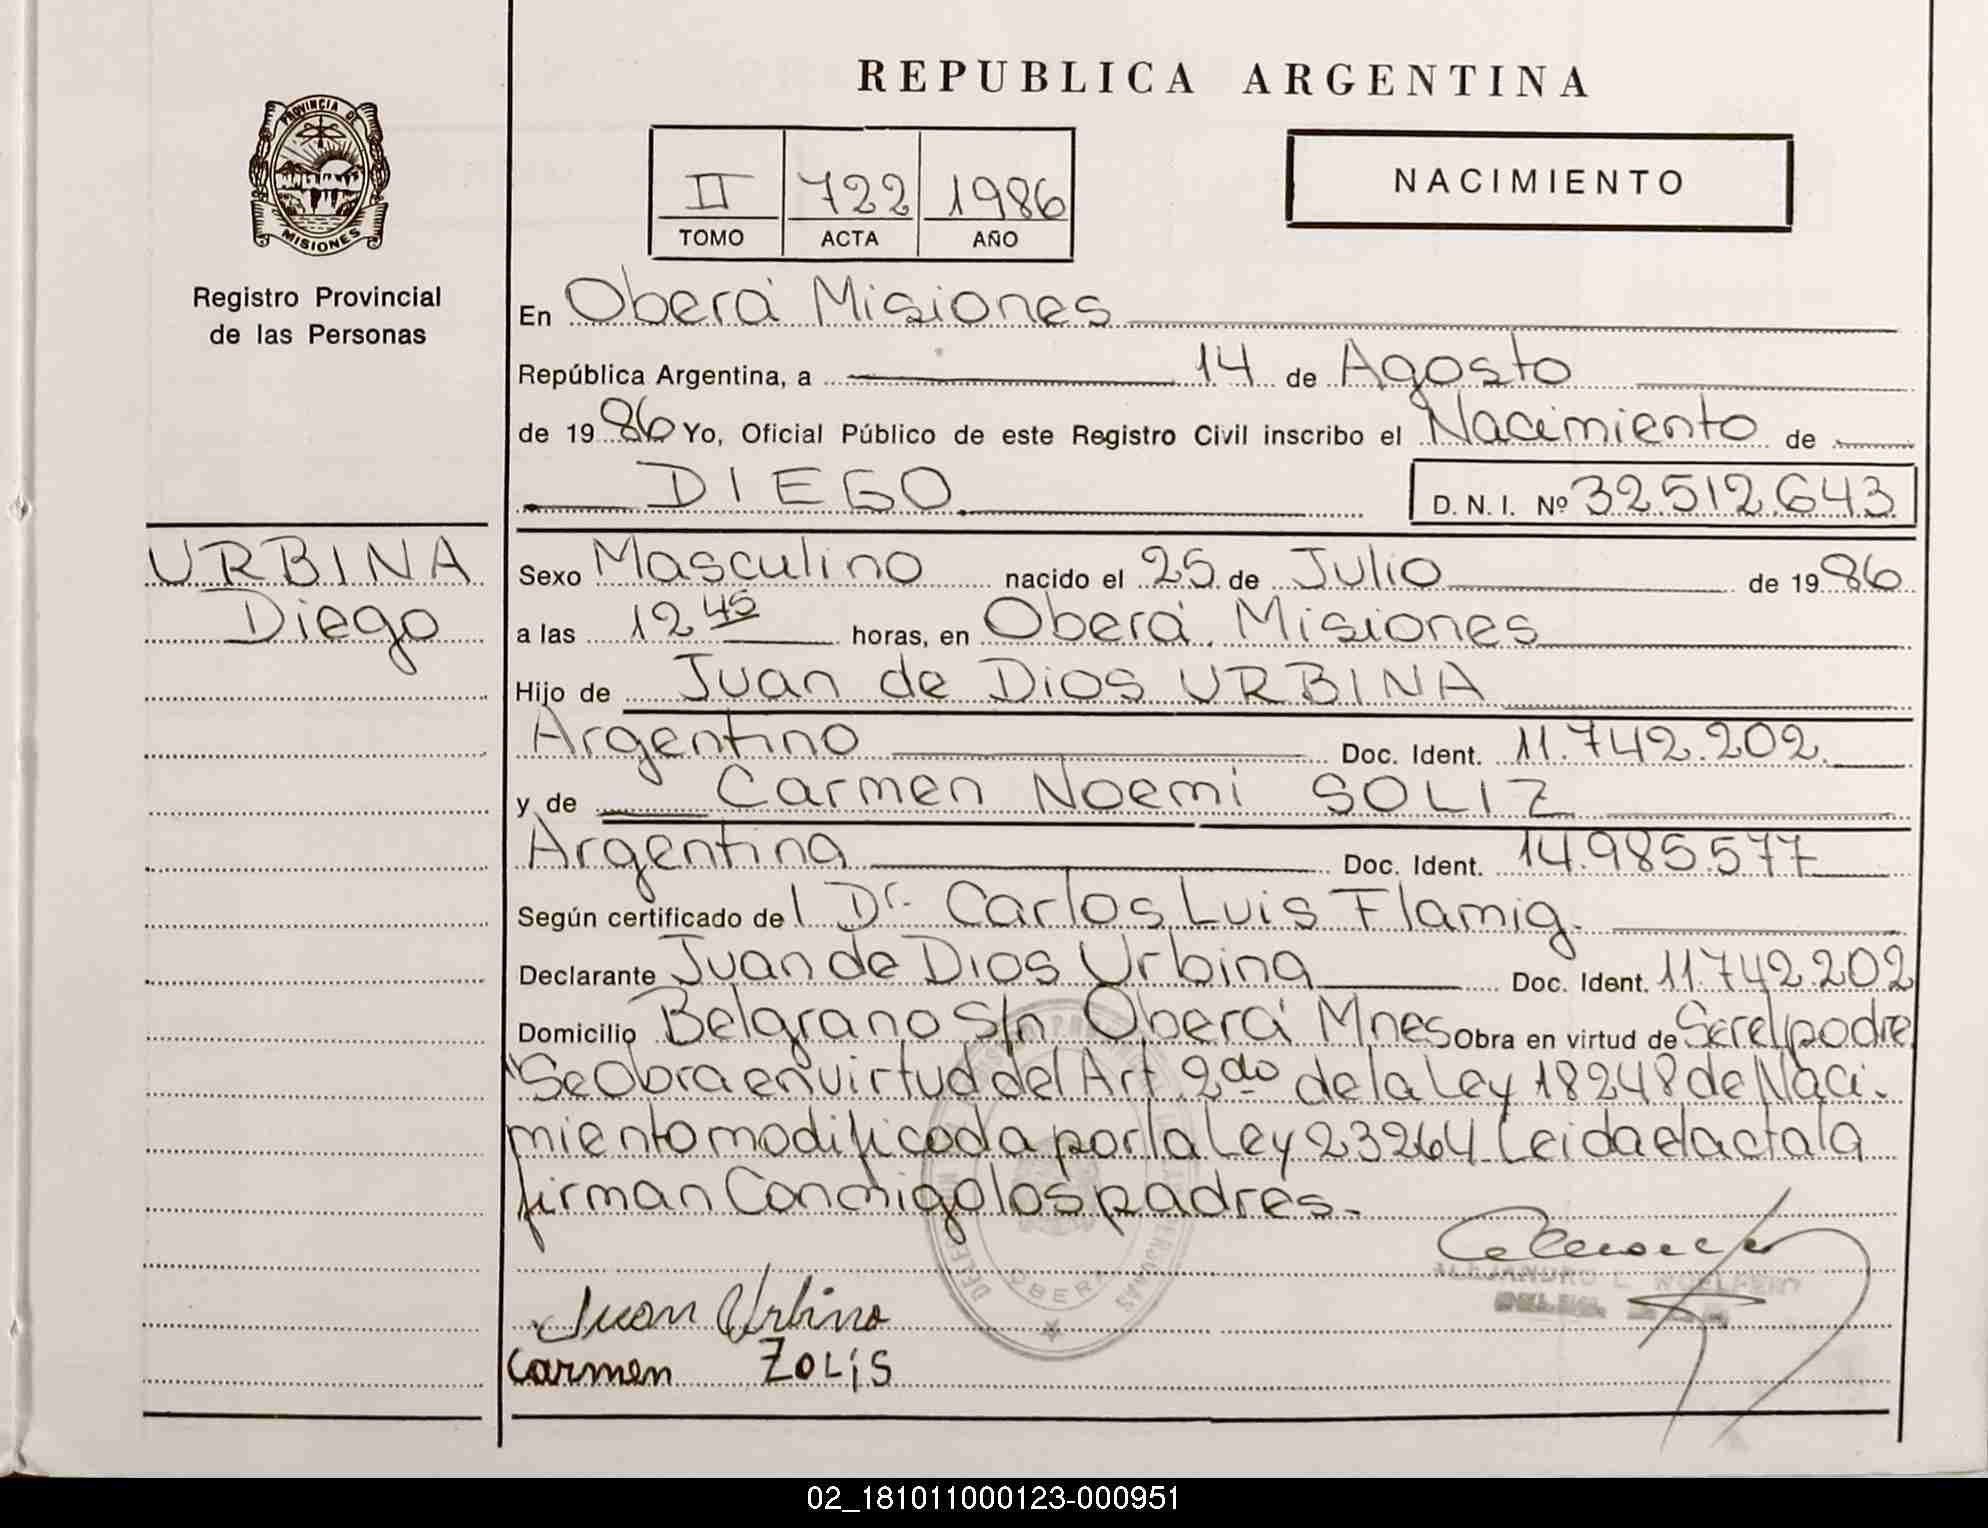 REPUBLICA ARGENTINA
PROVINCIA DE
MISIONES
Registro Provincial
de las Personas
II 722 1986
TOMO ACTA AÑO
NACIMIENTO
En Oberá Misiones
República Argentina, a 14 de Agosto
de 19 86 Yo, Oficial Público de este Registro Civil inscribo el Nacimiento de
DIEGO D. N. I. Nº 32.512.643
URBINA
Diego
Sexo Masculino nacido el 25 de Julio de 19 86
a las 12 45 horas, en Oberá Misiones
Hijo de Juan de Dios URBINA
Argentino Doc. Ident. 11.742.202.
y de Carmen Noemi SOLIZ
Argentina Doc. Ident. 14.985.577
Según certificado del Dr. Carlos Luis Flamig.
Declarante Juan de Dios Urbina Doc. Ident. 11.742.202
Domicilio Belgrano S/n Oberá Mnes Obra en virtud de Ser el padre
"Se Obra en virtud del Art. 2do de la Ley 18248 de Naci-
miento modificada por la Ley 23264 Leida el acta la
firman Conmigo los padres.-
Juan Urbina
Carmen ZOLIS
ALEJANDRO L.
OBERA
02_181011000123-000951